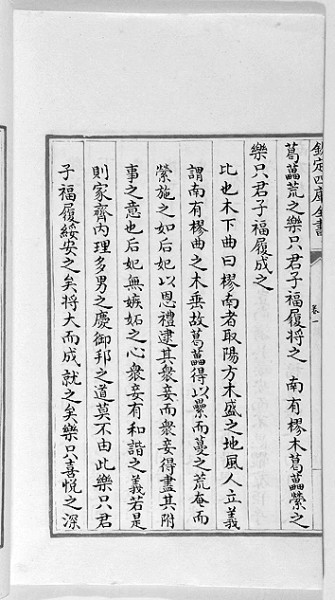 欽定四庫全書
卷一
葛藟荒之樂只君子福履將之　南有樛木葛藟縈之
樂只君子福履成之
比也木下曲曰樛南者取陽方木盛之地風人立義
謂南有樛曲之木垂故葛藟得以纍而蔓之荒奄而
縈施之如后妃以恩禮逮其衆妾而衆妾得盡其附
事之意也后妃無嫉妬之心衆妾有和諧之義若是
則家齊內理多男之慶御邦之道莫不由此樂只君
子福履綏安之矣將大而成就之矣樂只喜悅之深